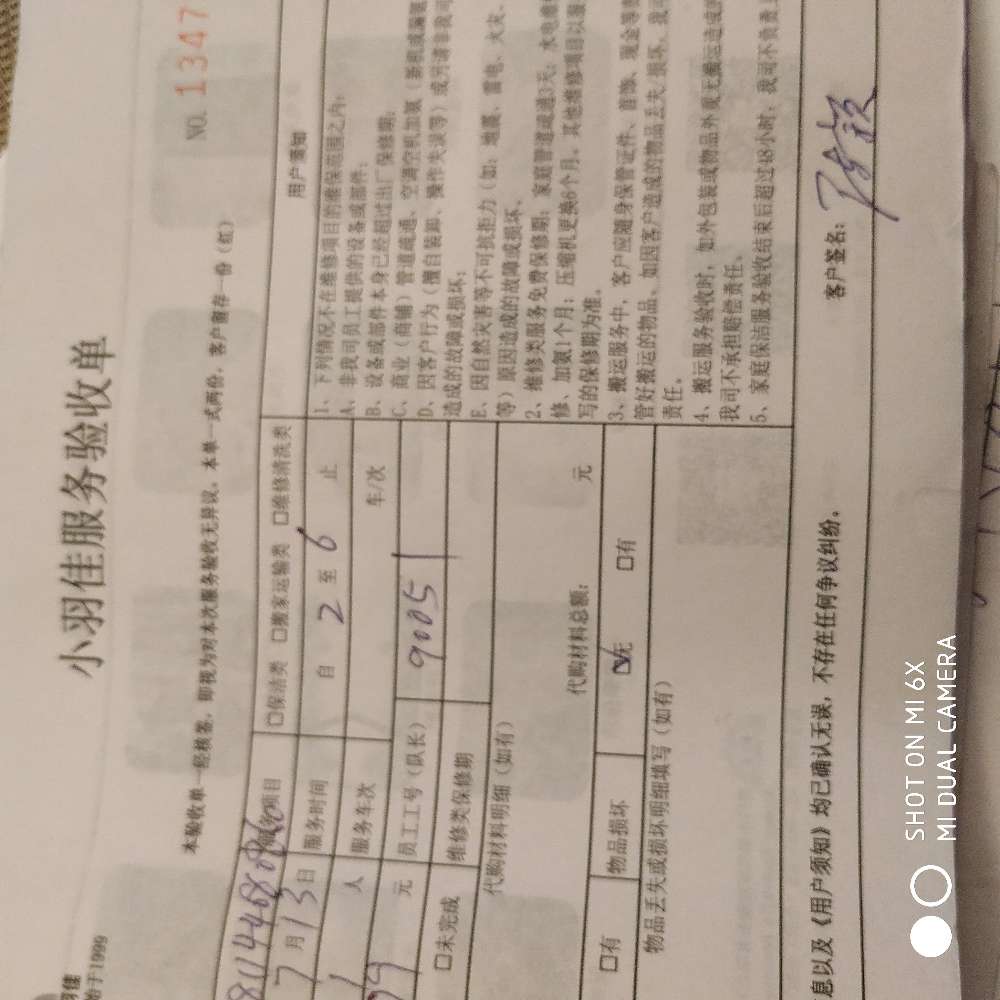 小羽佳服务验收单
始于1999
NO. 1347
本验收单一经核签，即视为对本次服务验收无异议。本单一式两份，客户留存一份（红）
服务项目 □保洁类 □搬家运输类 □维修清洗类
用户须知
7月13日 服务时间 自 2 至 6 止
1 人 服务车次 车/次
元 员工工号（队长） 9005
□未完成 维修类保修期
代购材料明细（如有） 代购材料总额： 元
□有 物品损坏 ☑无 □有
物品丢失或损坏明细填写（如有）
1、下列情况不在维修项目的维保范围之内：
A、非我司员工提供的设备或部件；
B、设备或部件本身已经超过出厂保修期；
C、商业（商铺）管道疏通、空调空机加氨（新机或漏氨
D、因客户行为（擅自装卸、操作失误等）或另请非我司
造成的故障或损坏；
E、因自然灾害等不可抗拒力（如：地震、雷电、火灾、
等）原因造成的故障或损坏。
2、维修类服务免费保修期：家庭管道疏通3天；水电维
修、加氨1个月；压缩机更换6个月。其他维修项目以服
写的保修期为准。
3、搬运服务中，客户应随身保管证件、首饰、现金等
管好搬运的物品。如因客户造成的物品丢失、损坏，我司
责任。
4、搬运服务验收时，如外包装或物品外观无搬运造成的
我司不承担赔偿责任。
5、家庭保洁服务验收结束后超过48小时，我司不负责
息以及《用户须知》均已确认无误，不存在任何争议纠纷。
客户签名：
SHOT ON MI 6X
MI DUAL CAMERA